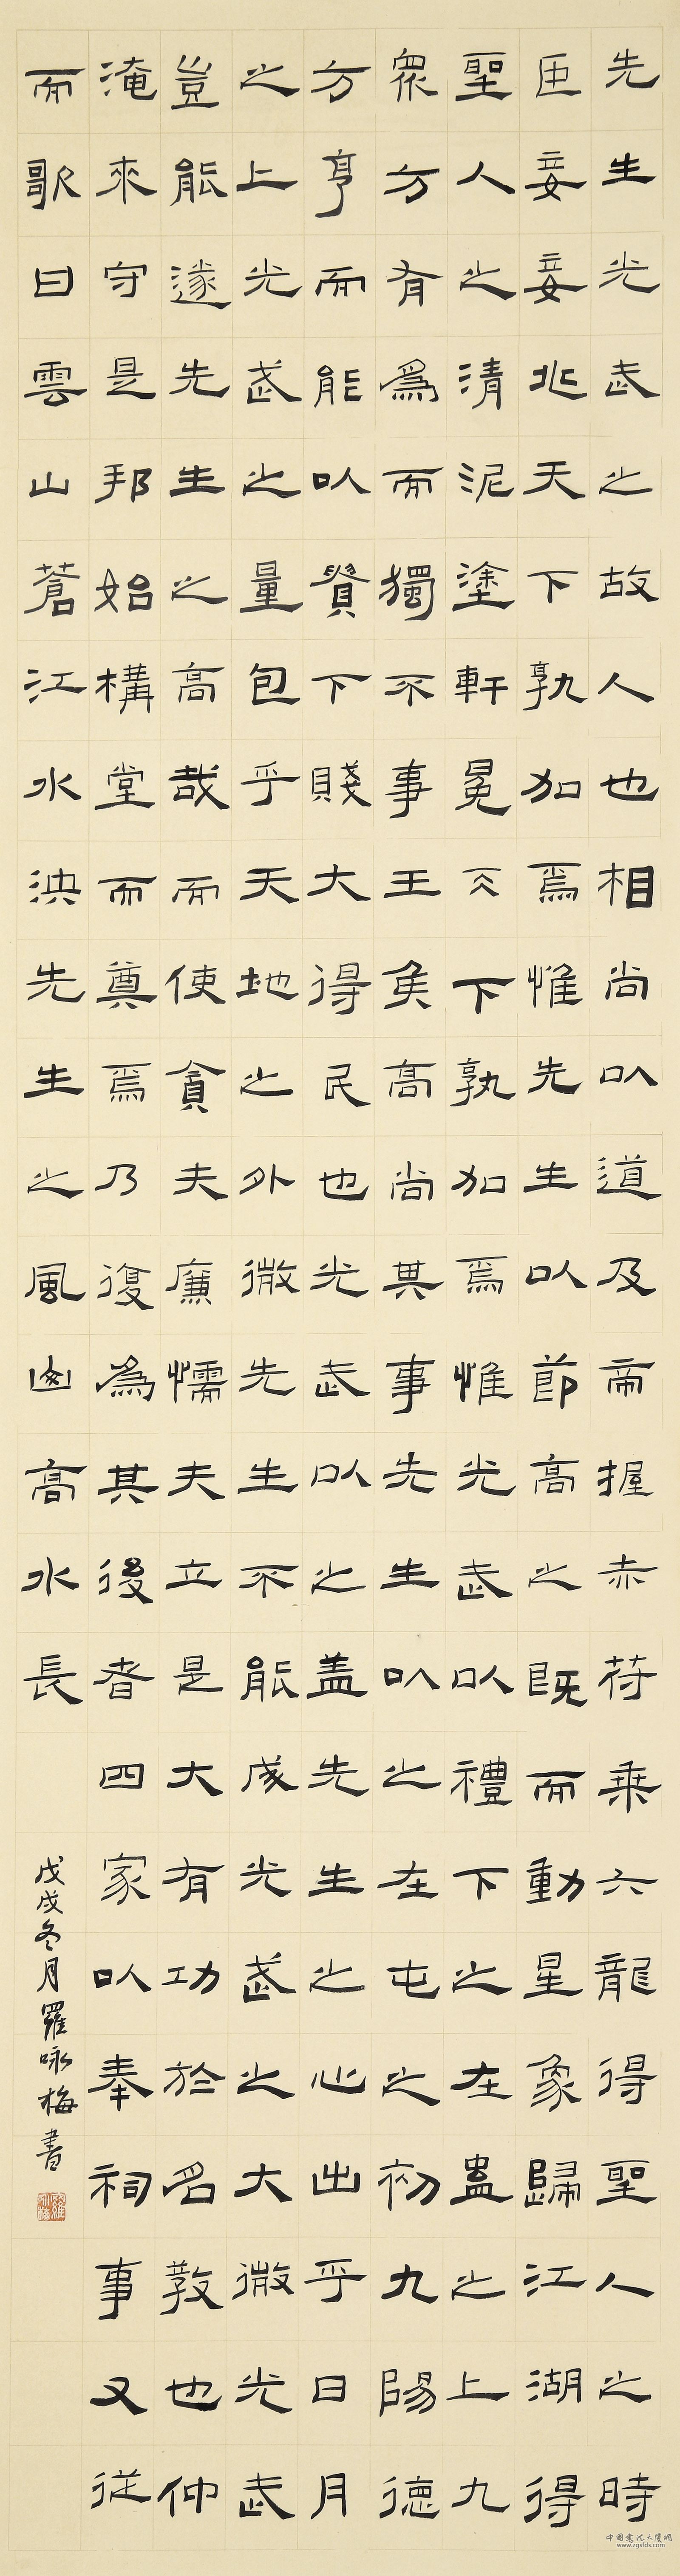 先生光武之故人也相尚以道及帝握赤符乘六龍得聖人之時
臣妾妾兆天下孰加焉惟先生以節高之既而動星象歸江湖得
聖人之清泥塗軒冕天下孰加焉惟光武以禮下之在蠱之上九
眾方有為而獨不事王侯高尚其事先生以之在屯之初九陽德
方亨而能以貴下賤大得民也光武以之盖先生之心出乎日月
之上光武之量包乎天地之外微先生不能成光武之大微光武
豈能遂先生之高哉而使貪夫廉懦夫立是大有功於名教也仲
淹來守是邦始構堂而奠焉乃復為其後者四家以奉祠事又從
而歌曰雲山蒼江水泱先生之風山高水長
戊戌冬月羅咏梅書
www.zgsfds.com